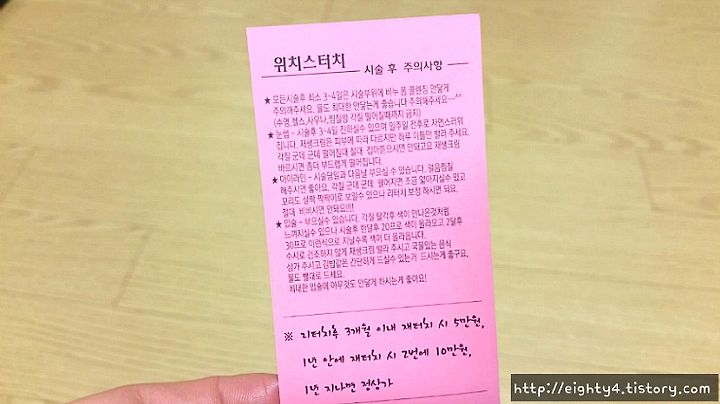 위치스터치
시술 후 주의사항
★ 모든시술후 최소 3~4일은 시술부위에 비누 폼 클렌징 안닿게
주의해주세요. 물도 최대한 안닿는게 좋습니다 주의해주세요~~^^
(수영,헬스,사우나,찜질방 각질 떨어질때까지 금지)
★ 눈썹 - 시술후 3~4일 진하실수 있으며 일주일 전후로 자연스러워
집니다. 재생크림은 피부에 따라 다르지만 하루 이틀만 발라 주세요.
각질 군데 군데 떨어질대 절대 잡아뜯으시면 안돼고요 재생크림
바르시면 좀더 부드럽게 떨어집니다.
★ 아이라인 - 시술당일과 다음날 부으실 수 있습니다. 얼음찜질
해주시면 좋아요. 각질 군데 군데 떨어지면 조금 얇아지실수 있고
꼬리도 살짝 짝짝이로 보일수 있으나 리터치 보정 하시면 되요.
절대 비비시면 안돼요!!!!
★ 입술 - 부으실수 있습니다. 각질 탈각후 색이 안나온것처럼
느껴지실수 있으나 시술후 한달후 20프로 색이 올라오고 2달후
30프로 이런식으로 지날수록 색이 더 올라옵니다.
수시로 건조하지 않게 재생크림 발라 주시고 국물있는 음식
삼가 주시고 김밥같은 간단하게 드실수 있는거 드시는게 좋구요,
물도 빨대로 드세요.
최대한 입술에 아무것도 안닿게 하시는게 좋아요!
※ 리터치후 3개월 이내 재터치 시 5만원,
1년 안에 재터치 시 2번에 10만원,
1년 지나면 정상가
http://eighty4.tistory.com